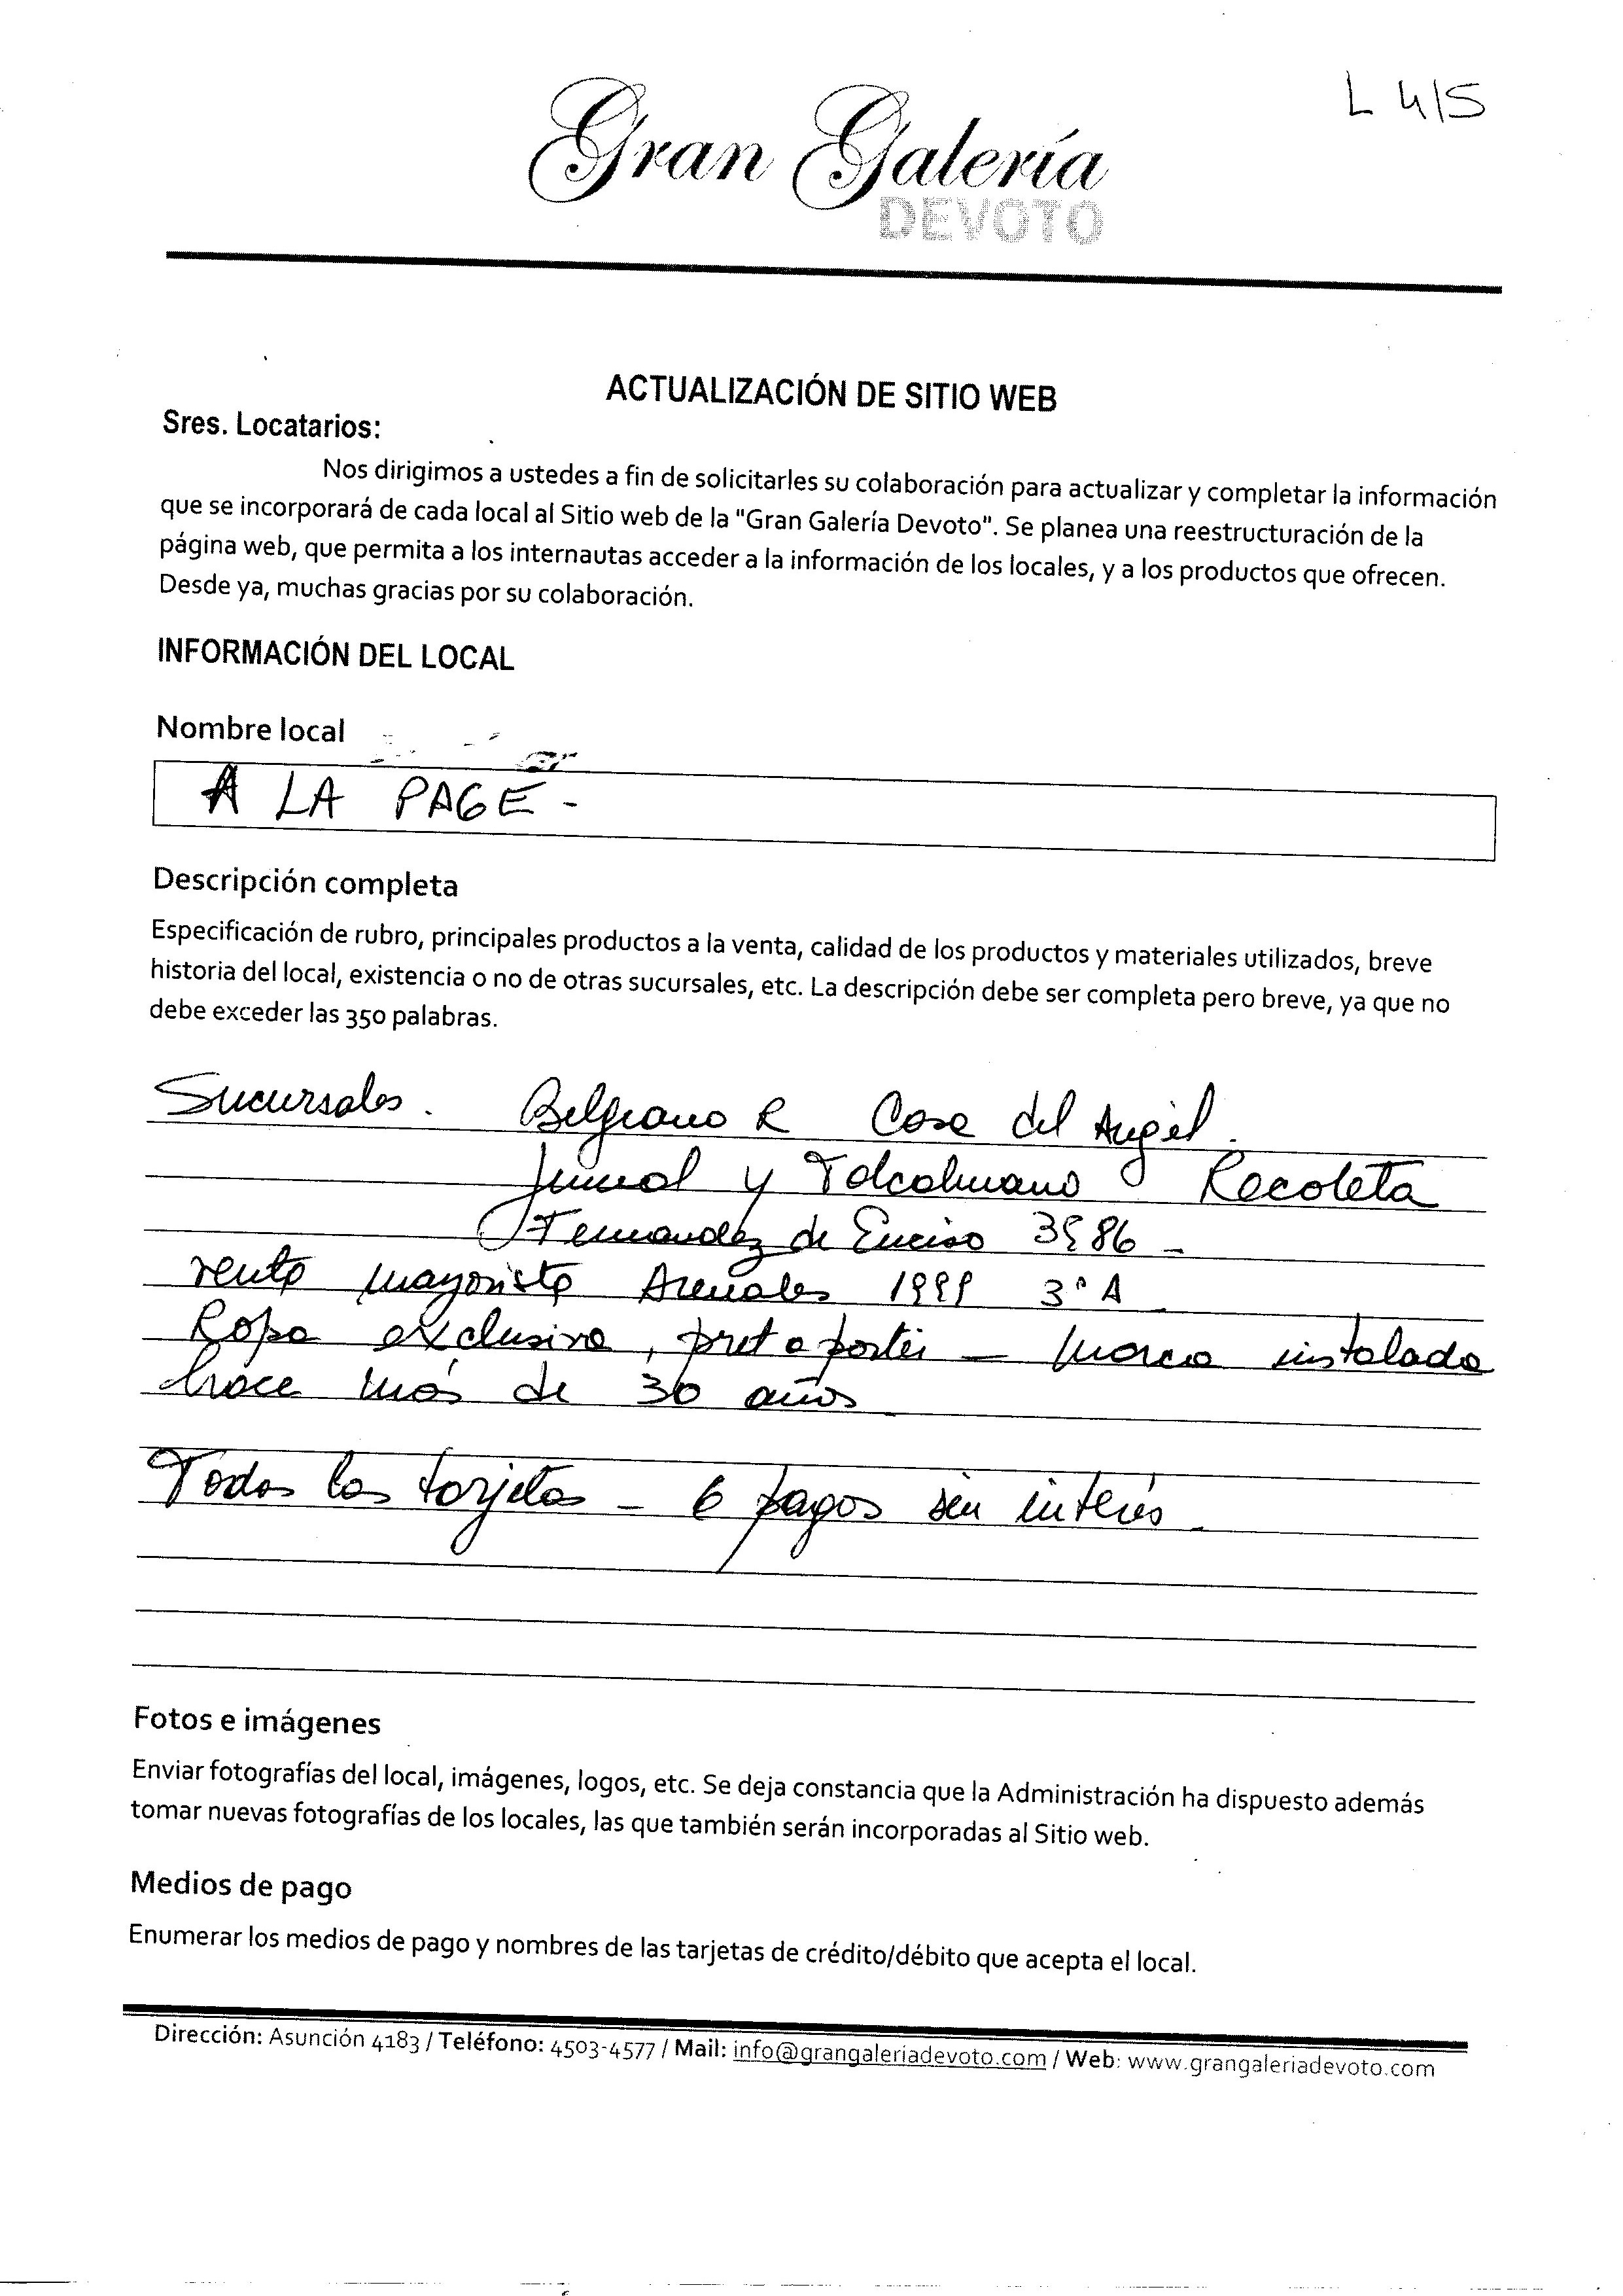 L 4/5
Gran Galería
DEVOTO
ACTUALIZACIÓN DE SITIO WEB
Sres. Locatarios:
Nos dirigimos a ustedes a fin de solicitarles su colaboración para actualizar y completar la información
que se incorporará de cada local al Sitio web de la "Gran Galería Devoto". Se planea una reestructuración de la
página web, que permita a los internautas acceder a la información de los locales, y a los productos que ofrecen.
Desde ya, muchas gracias por su colaboración.
INFORMACIÓN DEL LOCAL
Nombre local
A LA PAGE -
Descripción completa
Especificación de rubro, principales productos a la venta, calidad de los productos y materiales utilizados, breve
historia del local, existencia o no de otras sucursales, etc. La descripción debe ser completa pero breve, ya que no
debe exceder las 350 palabras.
Sucursales. Belgrano R Casa del Angel.
y Talcahuano Recoleta
Fernandez de Enciso 3986 -
venta mayorista Arenales 3° A
Ropa exclusiva, pret a porter - marca instalada
hace más de 30 años
Todas las tarjetas - 6 pagos sin interés.
Fotos e imágenes
Enviar fotografías del local, imágenes, logos, etc. Se deja constancia que la Administración ha dispuesto además
tomar nuevas fotografías de los locales, las que también serán incorporadas al Sitio web.
Medios de pago
Enumerar los medios de pago y nombres de las tarjetas de crédito/débito que acepta el local.
Dirección: Asunción 4183 / Teléfono: 4503-4577 / Mail: info@grangaleriadevoto.com / Web: www.grangaleriadevoto.com